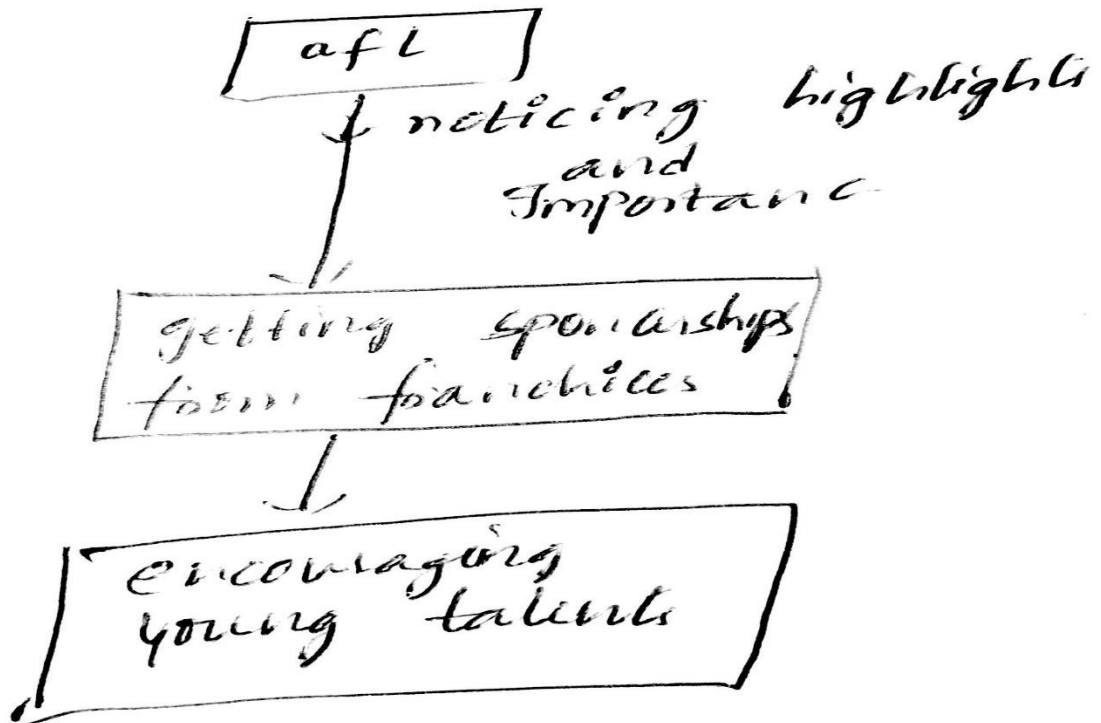 afl
noticing highlights
and
Importanc
getting sponarships
from franchices
encouraging
young talents